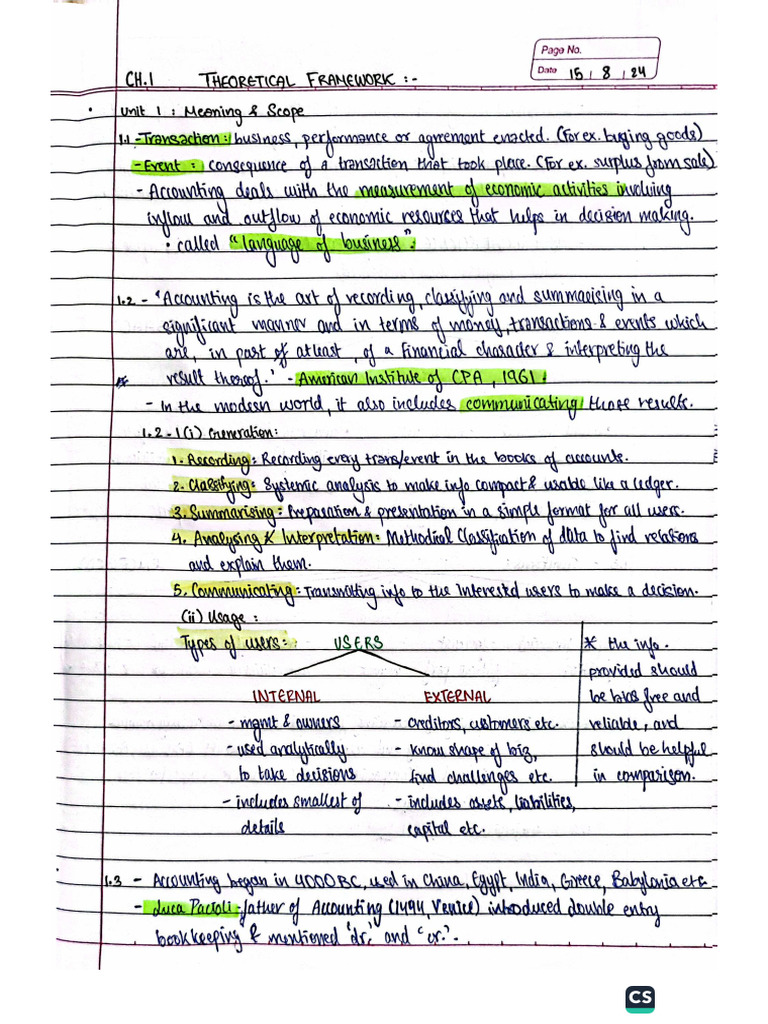 Page No.
Date 15 / 8 / 24
CH.1 THEORETICAL FRAMEWORK :-
• Unit 1 : Meaning & Scope
1.1 - Transaction : business, performance or agreement enacted. (For ex. buying goods)
- Event : consequence of a transaction that took place. (For ex. surplus from sale)
- Accounting deals with the measurement of economic activities involving
inflow and outflow of economic resources that helps in decision making.
• called "language of business".
1.2 - 'Accounting is the art of recording, classifying and summarising in a
significant manner and in terms of money, transactions & events which
are, in part of atleast, of a financial character & interpreting the
result thereof.' - American Institute of CPA, 1961.
- In the modern world, it also includes communicating those results.
1.2-1 (i) Generation:
1. Recording: Recording every trans/event in the books of accounts.
2. Classifying: Systemic analysis to make info compact & usable like a ledger.
3. Summarising: Preparation & presentation in a simple format for all users.
4. Analysing & Interpretation: Methodical Classification of data to find relations
and explain them.
5. Communicating: Transmitting info to the interested users to make a decision.
(ii) Usage :
Types of users: USERS
INTERNAL EXTERNAL
- mgmt & owners - creditors, customers etc.
- used analytically - know shape of biz,
to take decisions find challenges etc.
- includes smallest of - includes assets, liabilities,
details capital etc.
* the info.
provided should
be bias free and
reliable, and
should be helpful
in comparison.
1.3 - Accounting began in 4000 BC, used in China, Egypt, India, Greece, Babylonia etc
- Luca Pacioli - father of Accounting (1494, Venice) introduced double entry
bookkeeping & mentioned 'dr.' and 'cr.'.
CS